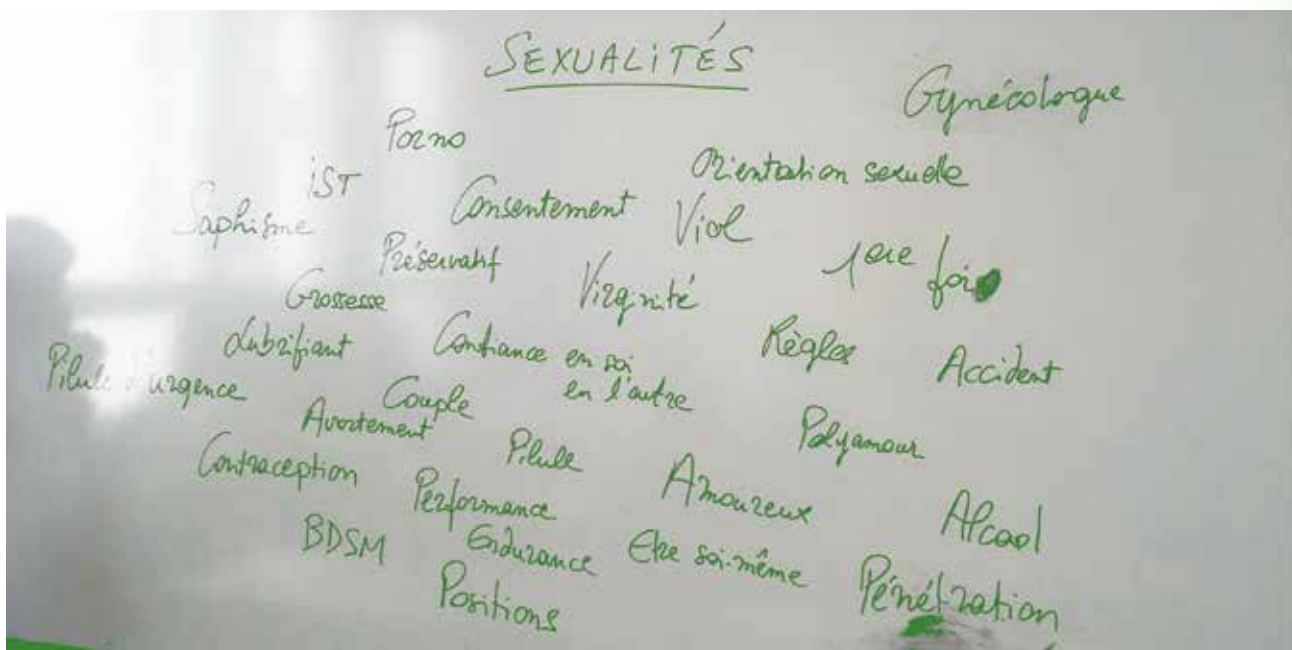 SEXUALITÉS
Gynécologue
Porno
Orientation sexuelle
IST
Consentement
Viol
Saphisme
Préservatif
Virginité
1ère fois
Grossesse
Lubrifiant
Confiance en soi
en l'autre
Règles
Accident
Pilule d'urgence
Couple
Avortement
Polyamour
Pilule
Contraception
Performance
Amoureux
Alcool
BDSM
Endurance
Etre soi-même
Pénétration
Positions